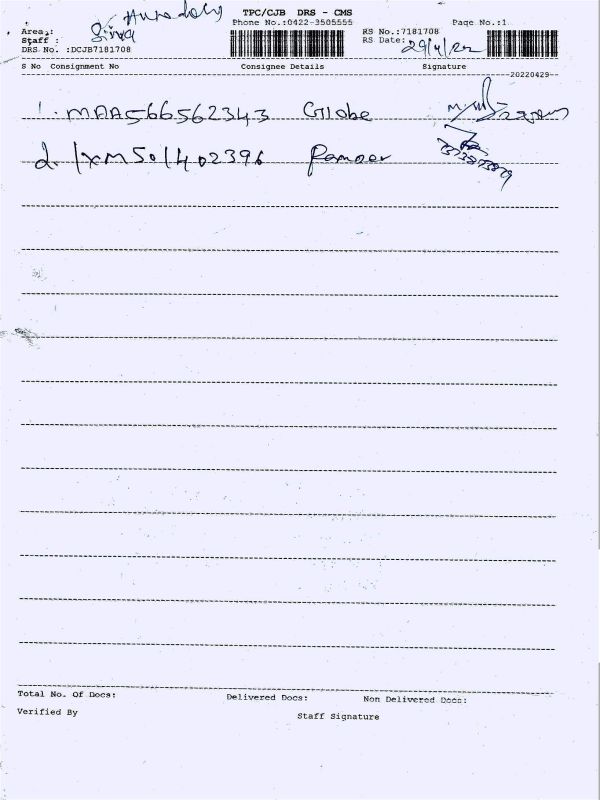 TPC/CJB DRS - CMS
Phone No.:0422-3505555
Page No.:1
Area :
Staff : Siva
DRS No. :DCJB7181708
RS No.:7181708
RS Date: 29/4/22
S No Consignment No Consignee Details Signature
--20220429--
1. MAA566562343 Globe
2. IXM501402396
Total No. Of Docs: Delivered Docs: Non Delivered Docs:
Verified By Staff Signature